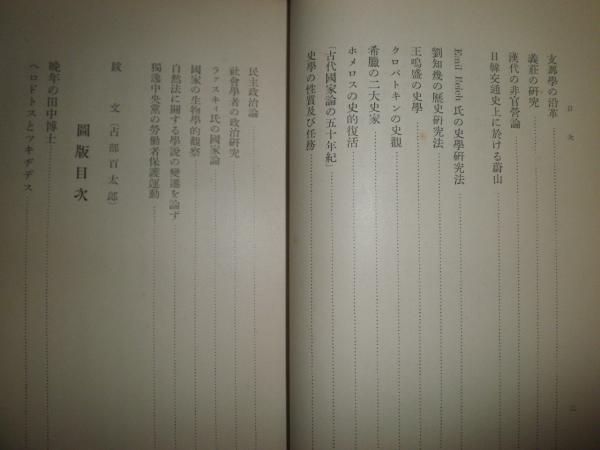 目次
支那學の沿革
義莊の研究
漢代の非官營論
日韓交通史上に於ける蔚山
Emil Reich 氏の史學研究法
劉知幾の歷史研究法
王鳴盛の史學
クロパトキンの史觀
希臘の二大史家
ホメロスの史的復活
「古代國家論の五十年紀」
史學の性質及び任務
民主政治論
社會學者の政治研究
ラァスキィ氏の國家論
國家の生物學的觀察
自然法に關する學說の變遷を論ず
獨逸中央黨の勞働者保護運動
跋文(占部百太郎)
圖版目次
晚年の田中博士
ヘロドトスとツキヂデス